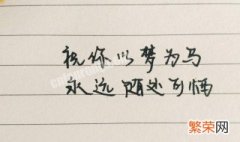 祝你以梦为马
永远随处可栖
繁荣网